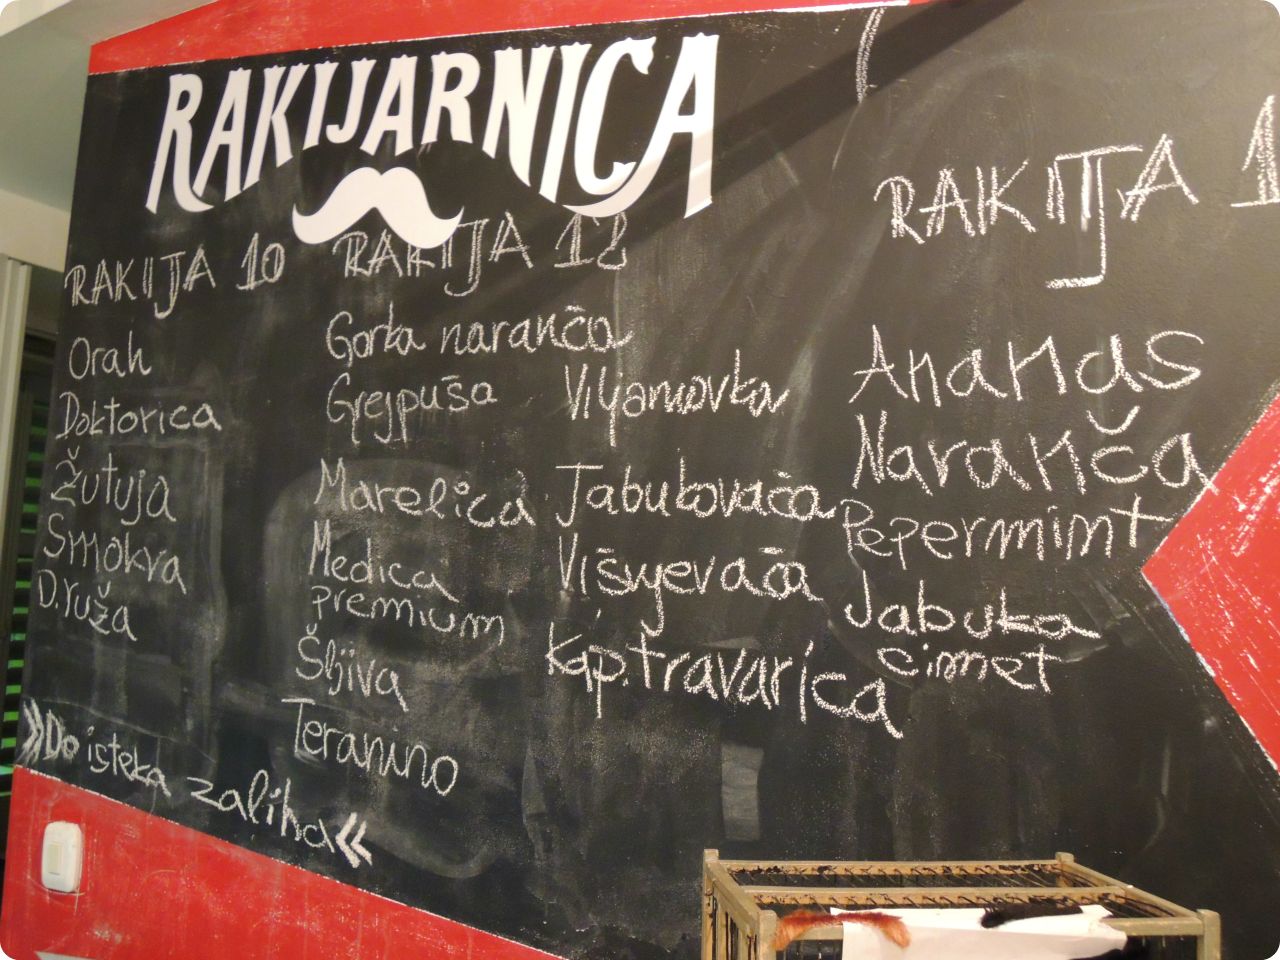 RAKIJARNICA
RAKIJA 10
Orah
Doktorica
Žutuja
Smokva
D.ruža
»Do isteka zaliha«
RAKIJA 12
Gorka naranča
Grejpuša
Marelica
Medica
premium
Šljiva
Teranino
Vilyamovka
Jabukovača
Višnjevača
Kap.travarica
RAKIJA 1
Ananas
Naranča
Pepermint
Jabuka
cimet